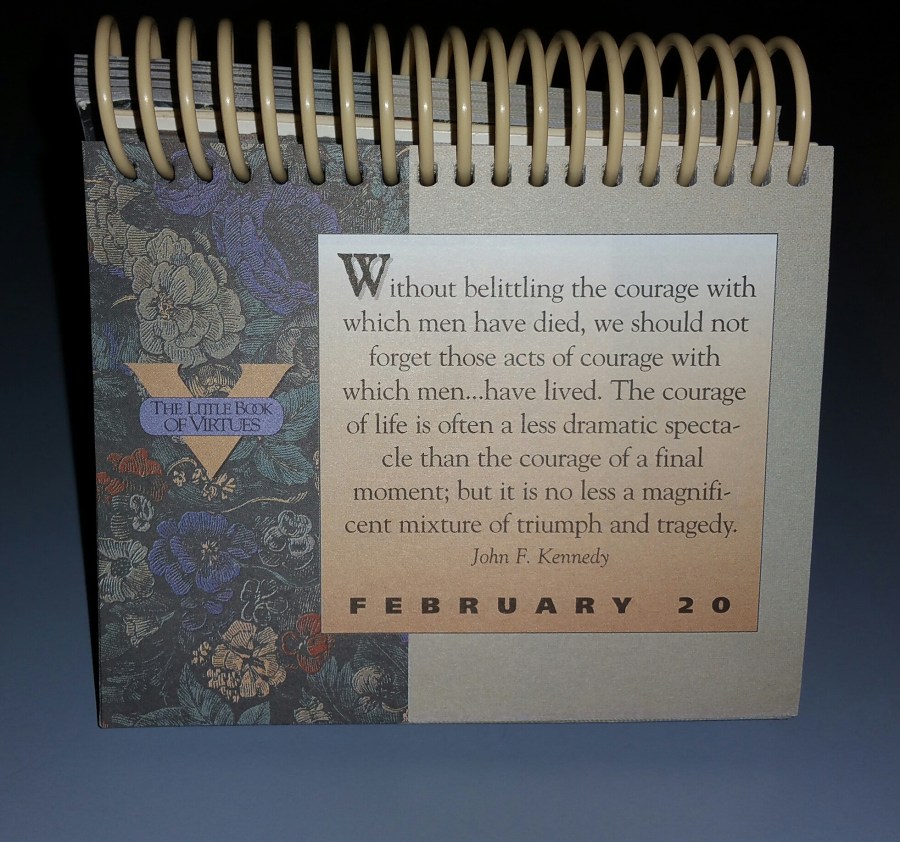 Without belittling the courage with
which men have died, we should not
forget those acts of courage with
which men...have lived. The courage
of life is often a less dramatic specta-
cle than the courage of a final
moment; but it is no less a magnifi-
cent mixture of triumph and tragedy.
John F. Kennedy
FEBRUARY 20
THE LITTLE BOOK
OF VIRTUES